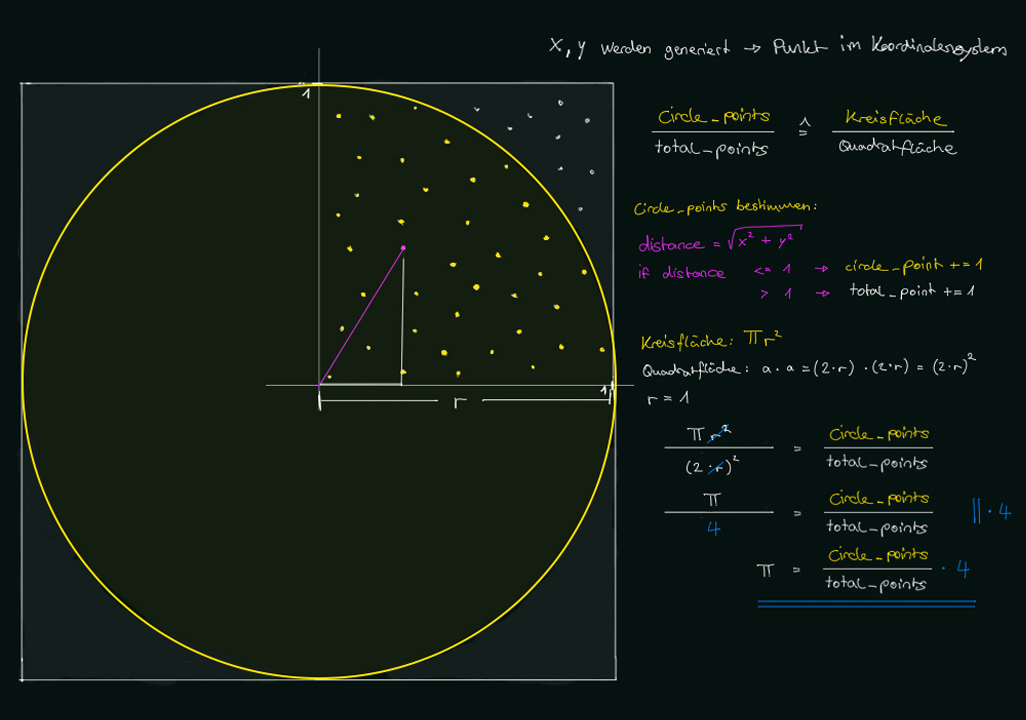 x, y werden generiert → Punkt im Koordinatensystem
1
1
r
Circle_points / total_points ≙ Kreisfläche / Quadratfläche
Circle_points bestimmen:
distance = √x² + y²
if distance <= 1 → circle_point += 1
> 1 → total_point += 1
Kreisfläche: πr²
Quadratfläche: a · a = (2·r) · (2·r) = (2·r)²
r = 1
πr² / (2·r)² = Circle_points / total_points
π / 4 = Circle_points / total_points || · 4
π = Circle_points / total_points · 4